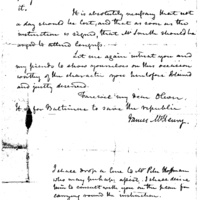 it.
It is absolutely necessary that not
a day should be lost, and that as soon as the
instruction is signed, that Mr Smith should be
urged to attend Congress.
Let me again intreat you and
my friends to show yourselves on this occasion
worthy of the character you heretofore
and justly desired.
my dear Oliver
it is for Baltimore to save the republic
James McHenry.
I shall drop a line to Mr Peter Hoffman
who may perhaps assist. I shall desire
him to consult with you on the plan for
carrying around the instruction.